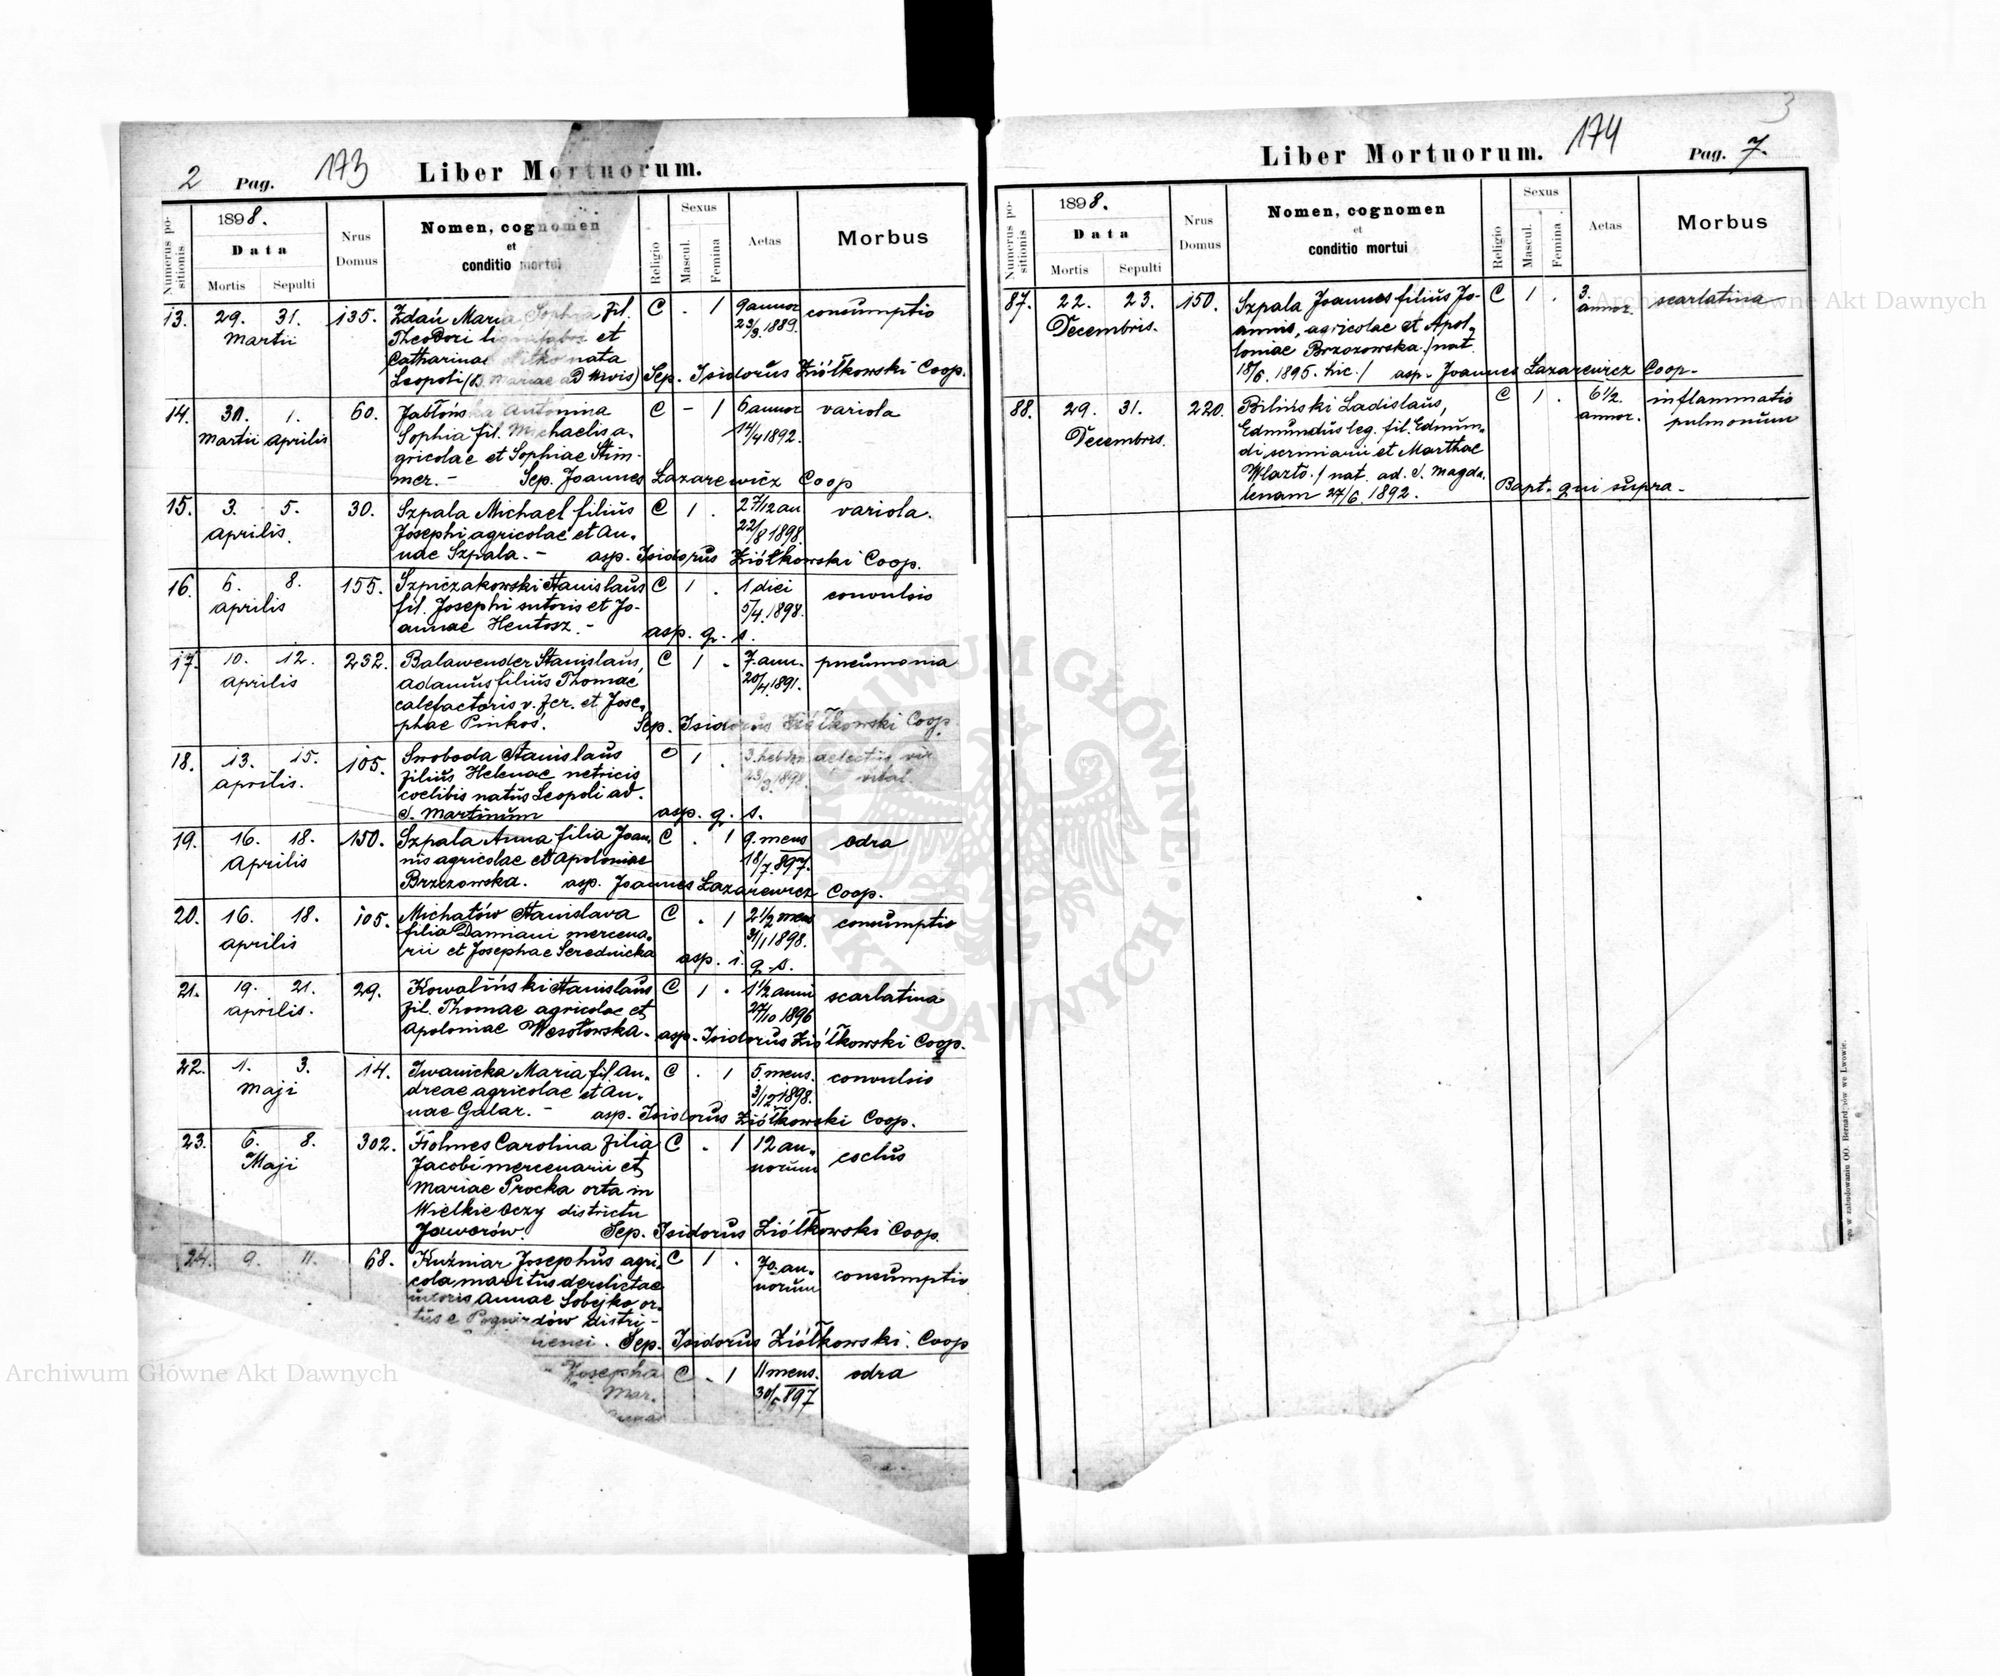 2 Pag. 173 Liber Mortuorum.
Numerus positionis
1898.
Data
Mortis Sepulti
Nrus Domus
Nomen, cognomen
et
conditio mortui
Religio
Sexus
Mascul. Femina
Aetas
Morbus
13. 29. 31. 135. Zdań Maria Sophia fil. C . 1 9 annor consumptio
Martii Theodori et 23/3.1889.
Catharinae nata
Leopoli (B. Mariae ad Nivis) Sep. Isidorus Ziółkowski Coop.
14. 30. 1. 60. Jabłońska Antonina C - 1 6 annor variola
Martii Aprilis Sophia fil. Michaelis a- 14/4 1892.
gricolae et Sophiae Stim-
mer. - Sep. Joannes Lazarewicz Coop
15. 3. 5. 30. Szpala Michael filius C 1 . 2 7/12 an variola.
Aprilis. Josephi agricolae et An- 22/8 1898.
nae Szpala. - asp. Isidorus Ziółkowski Coop.
16. 6. 8. 155. Szpiczakowski Stanislaus C 1 . 1 diei convulsio
Aprilis fil. Josephi sutoris et Jo- 5/4.1898.
annae Hentosz. - asp. q. s.
17. 10. 12. 232. Balawender Stanislaus, C 1 . 7. ann. pneumonia
Aprilis Adamus filius Thomae 20/4.1891.
calefactoris v. fer. et Jose-
phae Pinkos. Sep. Isidorus Ziółkowski Coop.
18. 13. 15. 105. Swoboda Stanislaus C 1 . 3. hebdm defectus vir
Aprilis. filius Helenae netricis 23/3.1898. vital.
coelibis natus Leopoli ad.
S. Martinum asp. q. s.
19. 16. 18. 150. Szpala Anna filia Joan- C . 1 9. mens odra
Aprilis nis agricolae et Apoloniae 18/7.897.
Brzozowska. asp. Joannes Lazarewicz Coop.
20. 16. 18. 105. Michałów Stanislava C . 1 2 1/2 mens consumptio
Aprilis filia Damiani mercena- 31/1 1898.
rii et Josephae Serednicka asp. i. q. s.
21. 19. 21. 29. Kowaliński Stanislaus C 1 . 1 1/2 anni scarlatina
Aprilis. fil. Thomae agricolae et 27/10 1896
Apoloniae Wesołowska. asp. Isidorus Ziółkowski Coop.
22. 1. 3. 14. Iwanicka Maria fil. An- C . 1 5. mens. convulsio
Maji dreae agricolae et An- 3/12 1898.
nae Galar. - asp. Isidorus Ziółkowski Coop.
23. 6. 8. 302. Holmes Carolina filia C . 1 12 an-
Maji Jacobi mercenarii et norum
Mariae Procka orta in
Wielkie Oczy districtu
Jaworów. Sep. Isidorus Ziółkowski Coop.
24. 9. 11. 68. Kuźniar Josephus agri- C 1 . 70. an- consumptio
cola maritus derelictae norum
uxoris Annae Sobejko or-
tus e distri-
Sep. Isidorus Ziółkowski. Coop
Josepha C . 1 11 mens. odra
Mar- 30/5 897
174
3
Liber Mortuorum. Pag. 7.
Numerus positionis
1898.
Data
Mortis Sepulti
Nrus
Domus
Nomen, cognomen
et
conditio mortui
Religio
Sexus
Mascul. Femina
Aetas
Morbus
87. 22. 23. 150. Szpala Joannes filius Jo- C 1 . 3. scarlatina
Decembris. annis, agricolae et Apol- annor.
loniae Brzozowska. / nat.
18/6. 1895. hic. / asp. Joannes Lazarewicz Coop.
88. 29. 31. 220. Biliński Ladislaus, C 1 . 6 1/2. inflammatio
Decembris. Edmundus leg. fil. Edmun- annor. pulmonum
di et Marthae
Wlazło. / nat. ad. S. Magda-
lenam 27/6. 1892. Bapt. qui supra.
Archiwum Główne Akt Dawnych
Archiwum Główne Akt Dawnych
ARCHIWUM GŁÓWNE AKT DAWNYCH